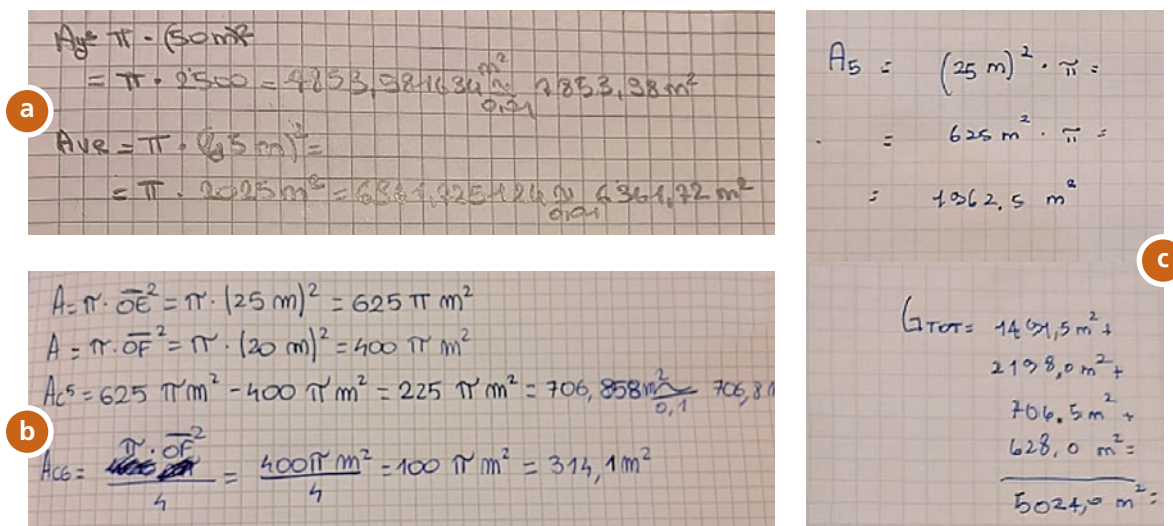 a
Aye π · (50m)²
= π · 2500 = 7853,981634 m² ≈ 0,01 7853,98m²
Ave = π · (45m)² =
= π · 2025m² = 6361,725124 ≈ 0,01 6361,72 m²
b
A = π · OE² = π · (25 m)² = 625 π m²
A = π · OF² = π · (20 m)² = 400 π m²
Ac5 = 625 π m² - 400 π m² = 225 π m² = 706,858m² ≈ 0,1 706,8
Ac6 = π · OF² / 4 = 400π m² / 4 = 100 π m² = 314,1m²
c
A5 = (25 m)² · π =
= 625 m² · π =
= 1962,5 m²
GTOT = m² +
2198,0m² +
706,5m² +
628,0 m² =
5024,0 m² =